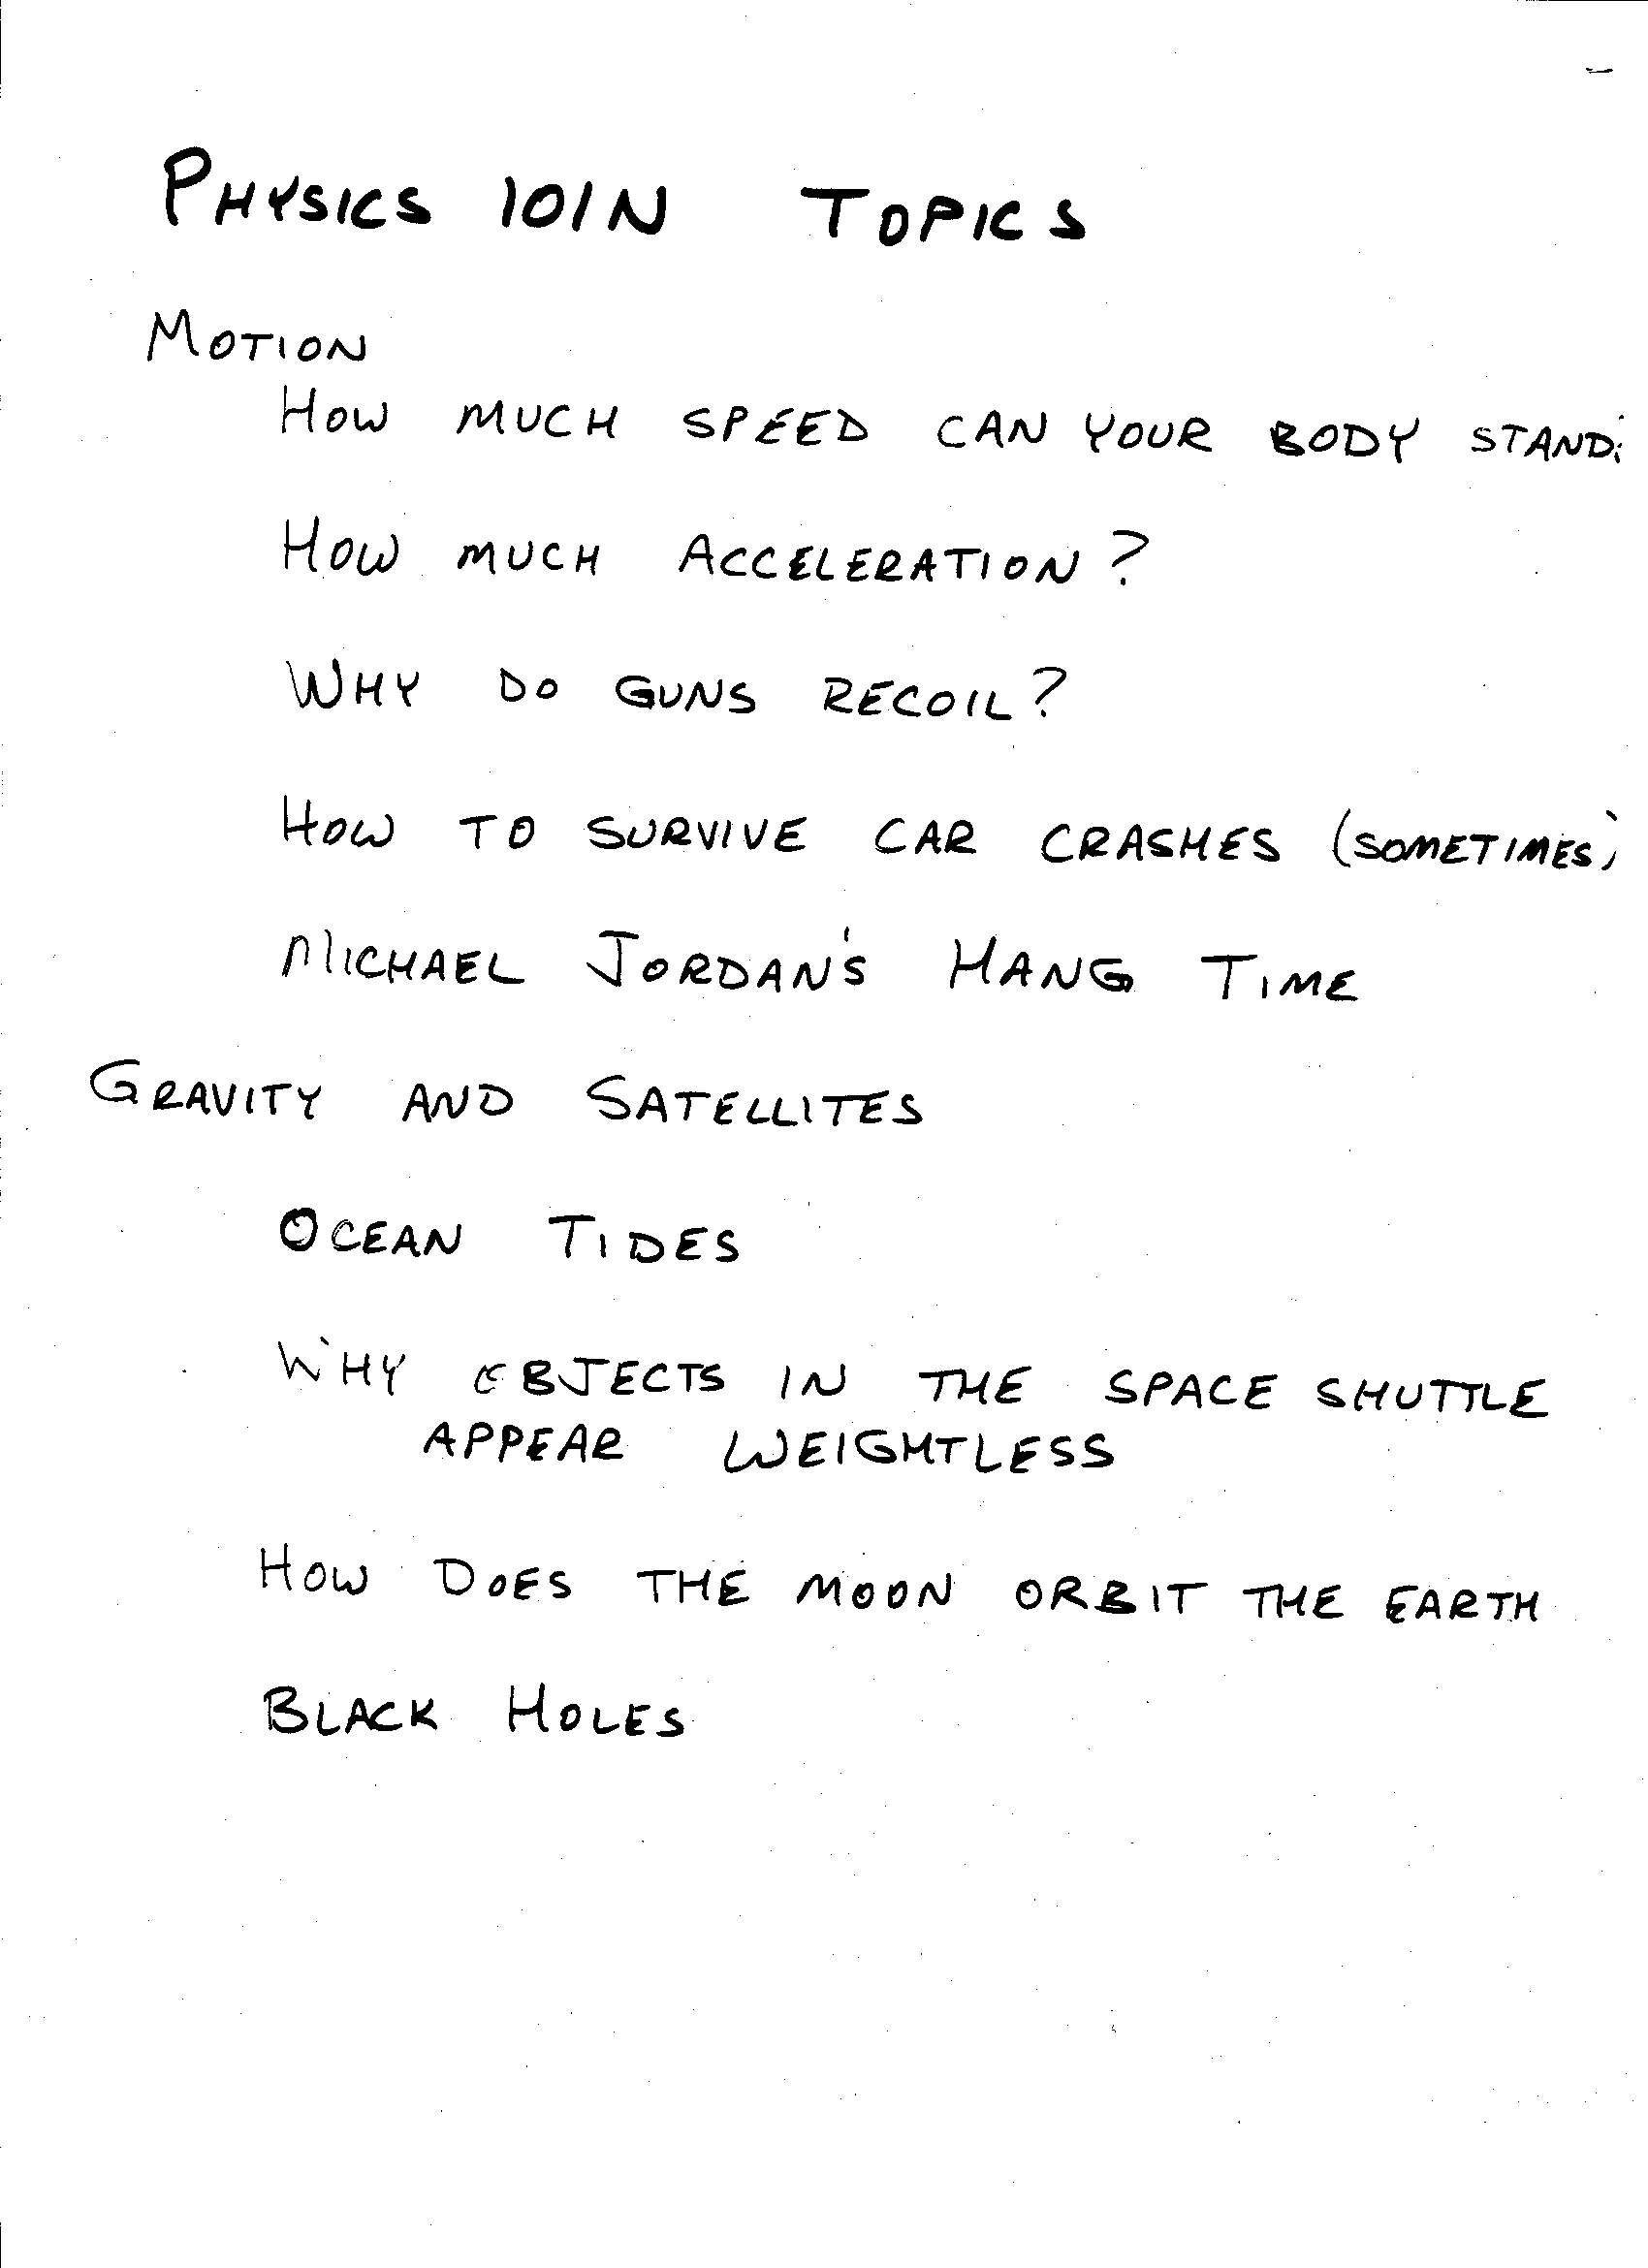 PHYSICS 101N TOPICS
MOTION
HOW MUCH SPEED CAN YOUR BODY STAND?
HOW MUCH ACCELERATION?
WHY DO GUNS RECOIL?
HOW TO SURVIVE CAR CRASHES (SOMETIMES)
MICHAEL JORDAN'S HANG TIME
GRAVITY AND SATELLITES
OCEAN TIDES
WHY OBJECTS IN THE SPACE SHUTTLE
APPEAR WEIGHTLESS
HOW DOES THE MOON ORBIT THE EARTH
BLACK HOLES